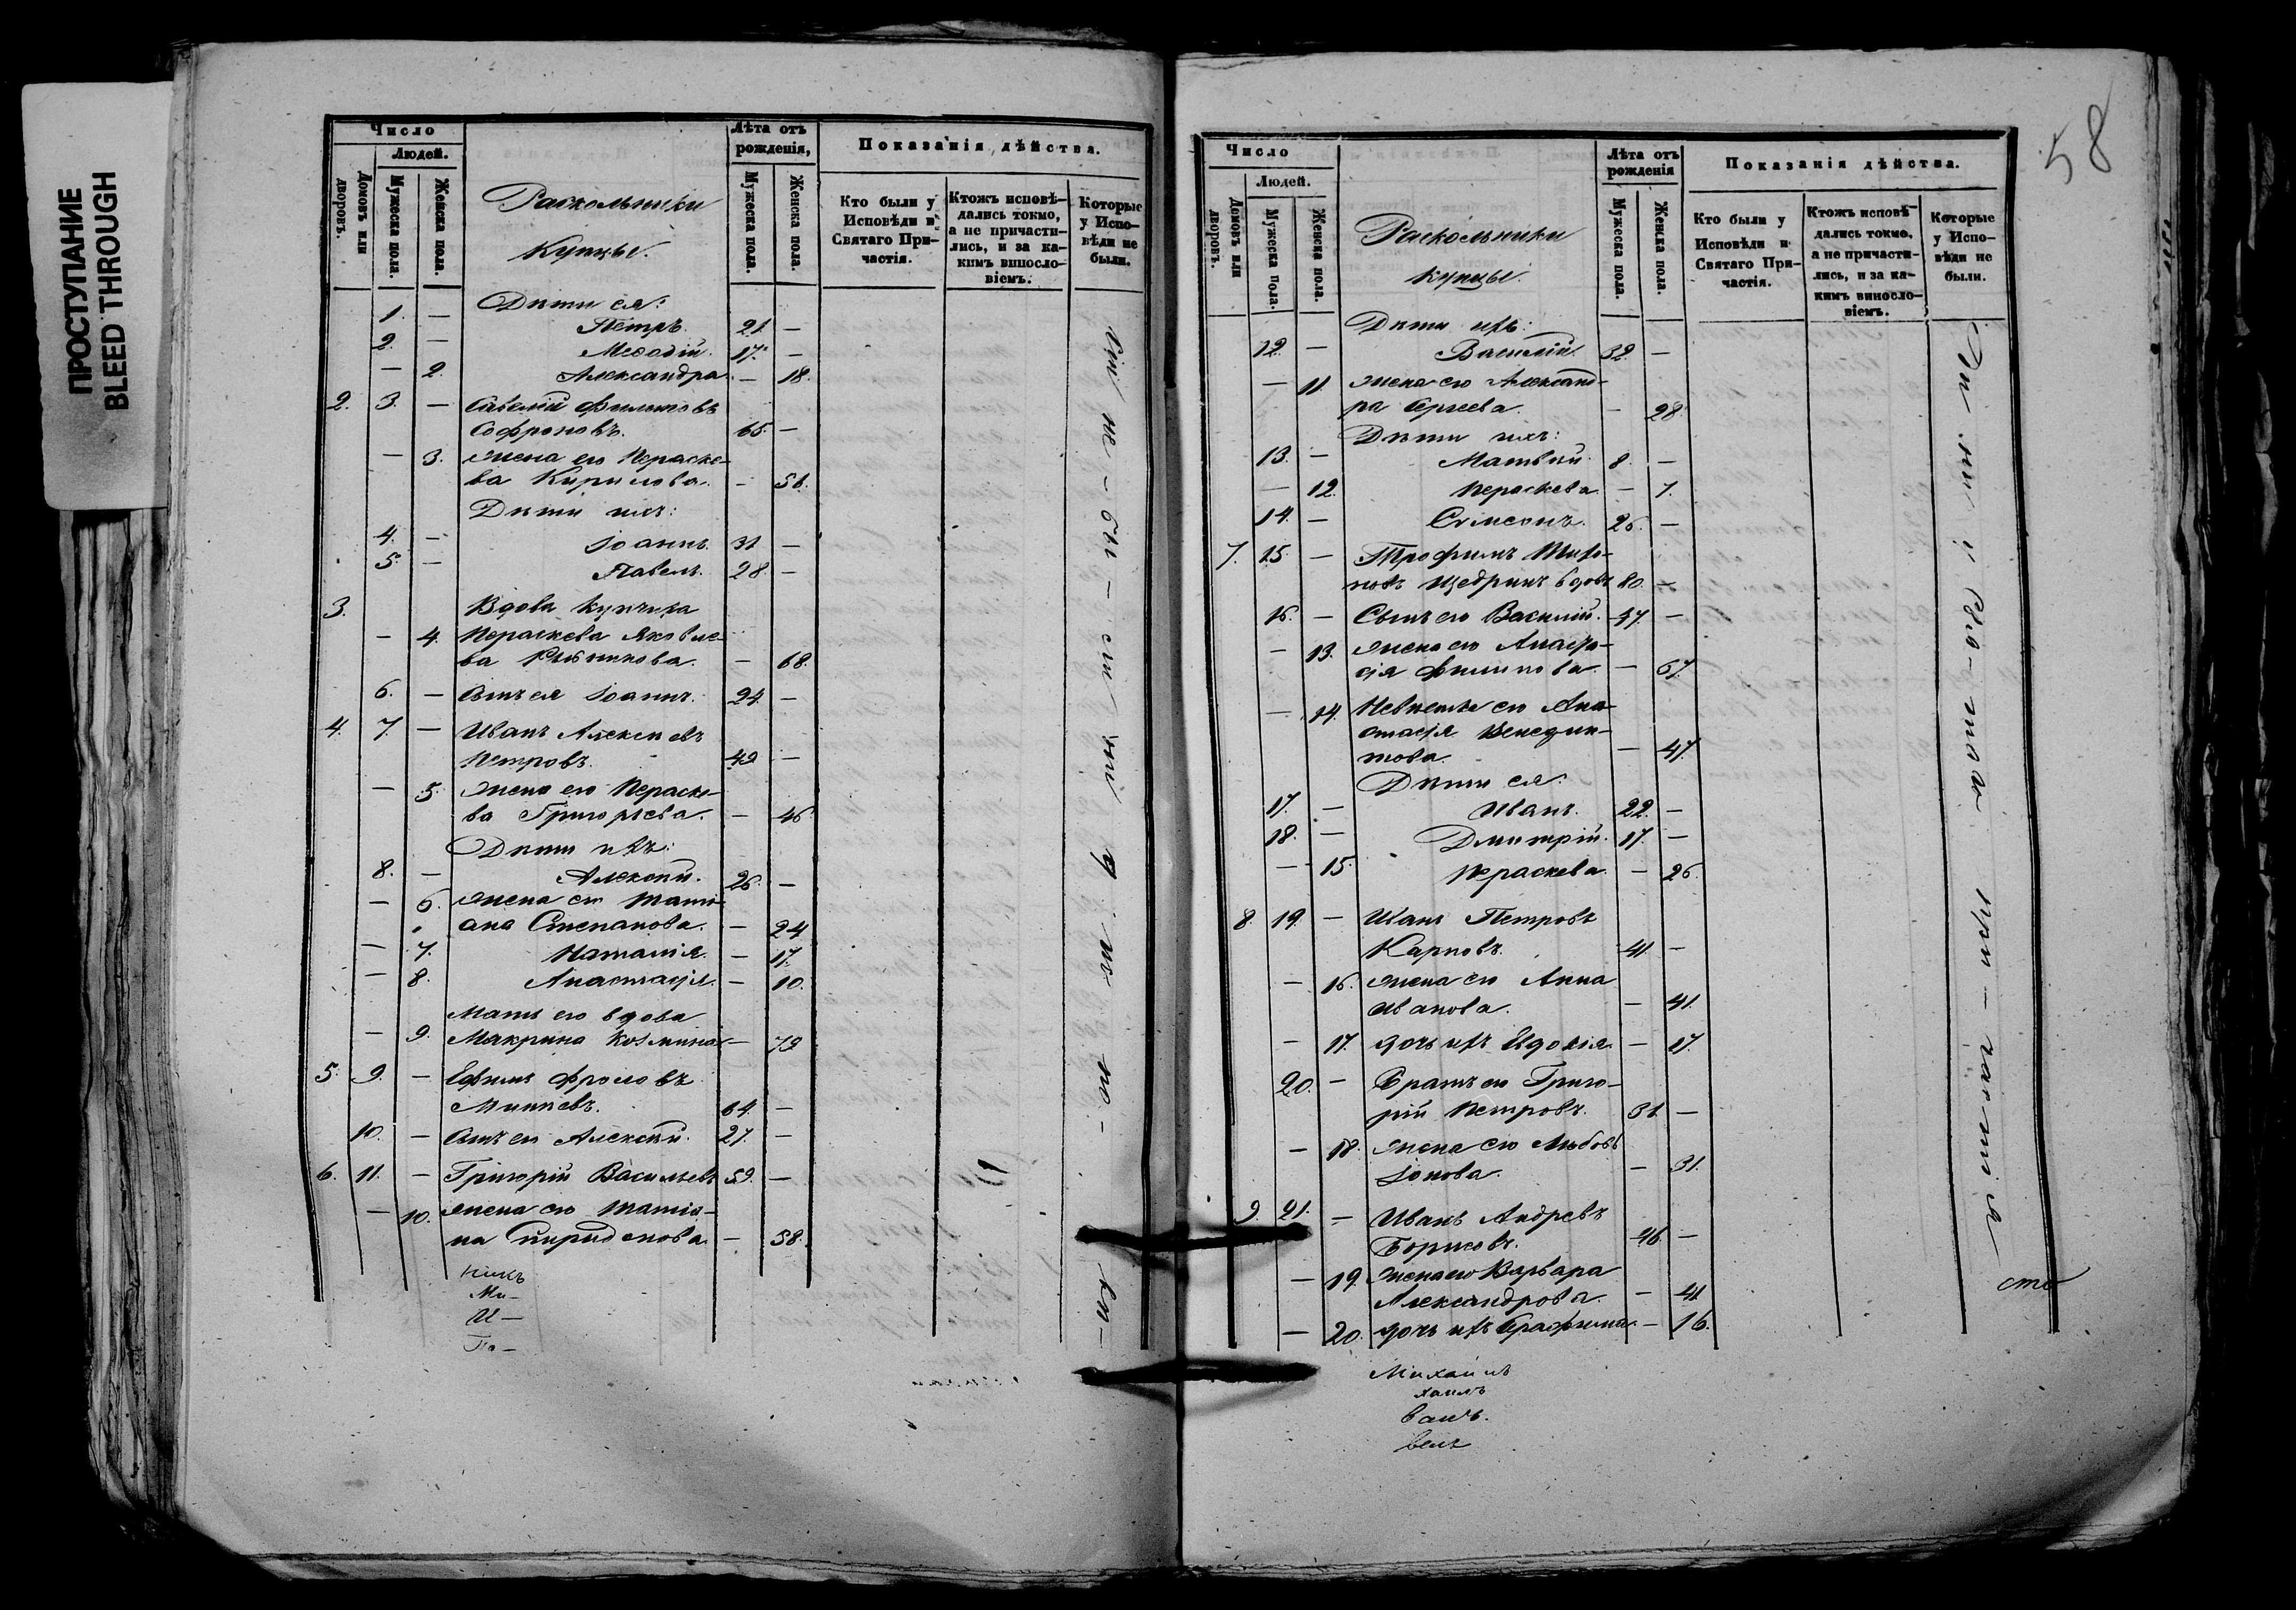 ПРОСТУПАНИЕ
BLEED THROUGH
Число
Людей.
Домовъ или дворовъ.
Мужеска пола.
Женска пола.
Раскольники
Купцы.
Лѣта отъ рожденія,
Мужеска пола.
Женска пола.
Показанія дѣйства.
Кто были у Исповѣди и Святаго Причастія.
Ктожъ исповѣдались токмо, а не причастились, и за какимъ винословіемъ.
Которые у Исповѣди не были.
Дѣти ея:
1. — Петръ. 21. —
2. — Меѳодій. 17. —
— 2. Александра — 18.
2. 3. — Савелій Филиповъ
Софроновъ. 65. —
— 3. жена его Параске-
ва Кирилова. — 56.
Дѣти ихъ:
4. — Іоаннъ. 31 —
5. — Павелъ. 28. —
3. Вдова купчиха
— 4. Параскева Яковле-
ва — 68.
6. — Сынъ ея Іоаннъ. 24. —
4. 7. — Иванъ Алексѣевъ
Петровъ. 49 —
— 5. жена его Параске-
ва Григорьева. — 46.
Дѣти ихъ:
8. — Алексѣй. 26. —
— 6. жена его Таті-
ана Степанова. — 24
— 7. Наталія. — 17.
— 8. Анастасія. — 10.
Мать его вдова
— 9. Макрина Козмина — 79
5. 9. — Ефимъ Фроловъ
64. —
10. — Сынъ его Алексѣй. 27. —
6. 11. — Григорій Васильевъ 59. —
— 10. жена его Татіа-
на Спиридонова. — 58.
Ми—
И—
Па—
58
Число
Людей.
Домовъ или дворовъ.
Мужеска пола.
Женска пола.
Раскольники
Купцы.
Лѣта отъ рожденія
Мужеска пола.
Женска пола.
Показанія дѣйства.
Кто были у Исповѣди и Святаго Причастія.
Ктожъ исповѣдались токмо, а не причастились, и за какимъ винословіемъ.
Которые у Исповѣди не были.
Дѣти ихъ:
12. — Василій. 32. —
— 11 жена его Александ-
ра Сергеева. — 28.
Дѣти ихъ:
13. — Матвѣй. 8. —
— 12. Параскева — 7.
14. — Сѵмеонъ. 26. —
7. 15. — Трофимъ Тихо-
новъ Щедринъ вдовъ 80. —
16. — Сынъ его Василій. 47. —
— 13. жена его Анаста-
сія Филипова — 67.
— 14. Невѣстка его Ана-
стасія Венедик-
това. — 47.
Дѣти ея:
17. — Иванъ. 22. —
18. — Дмитрій. 17. —
— 15. Параскева. — 26.
8. 19. — Иванъ Петровъ
Карповъ. 41. —
— 16. жена его Анна
Иванова. — 41.
— 17. дочь ихъ Евдокія — 17.
20. — Братъ его Григо-
рій Петровъ. 31. —
— 18. жена его Любовь
Іонова. — 31.
9. 21. — Иванъ Андреевъ
Борисовъ. 46. —
— 19. жена его Варвара
Александрова. — 41
— 20. дочь ихъ Серафима — 16.
Михаилъ
хаилъ
ванъ.
велъ